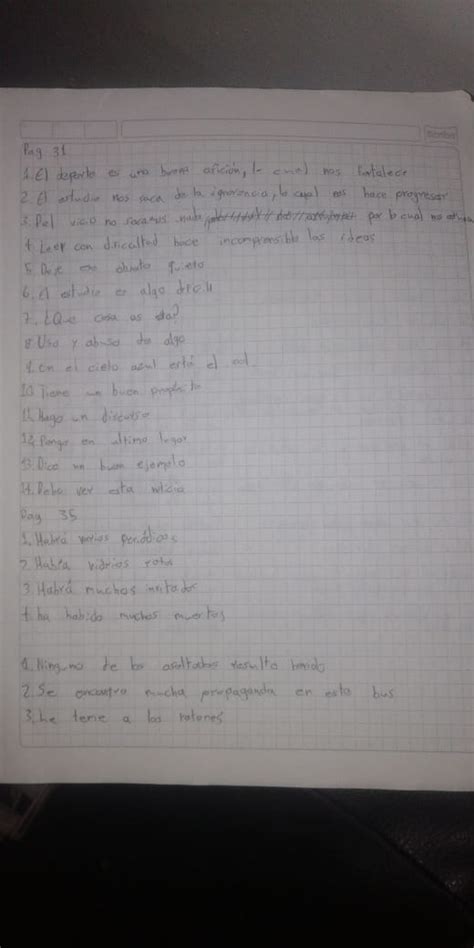 Scribe
Pag 31
1. El deporte es una buena afición, lo cual nos fortalece
2. El estudio nos saca de la ignorancia, lo cual nos hace progresar
3. Del vicio no sacamos nada por lo cual no
4. Leer con dificultad hace incomprensible las ideas
5. Deje ese objeto quieto
6. El estudio es algo difícil
7. ¿Que cosa es esta?
8. Uso y abuso de algo
9. en el cielo azul está el sol
10. Tiene un buen proposito
11. Hago un discurso
12. Pongo en ultimo lugar
13. Dice un buen ejemplo
14. Debo ver esta noticia
Pag 35
1. Habrá varios periódicos
2. Había vidrios rotos
3. Habrá muchos invitados
4. ha habido muchos muertos
1. Ninguno de los asaltados resulto herido
2. Se encuentra mucha propaganda en este bus
3. Le teme a los ratones